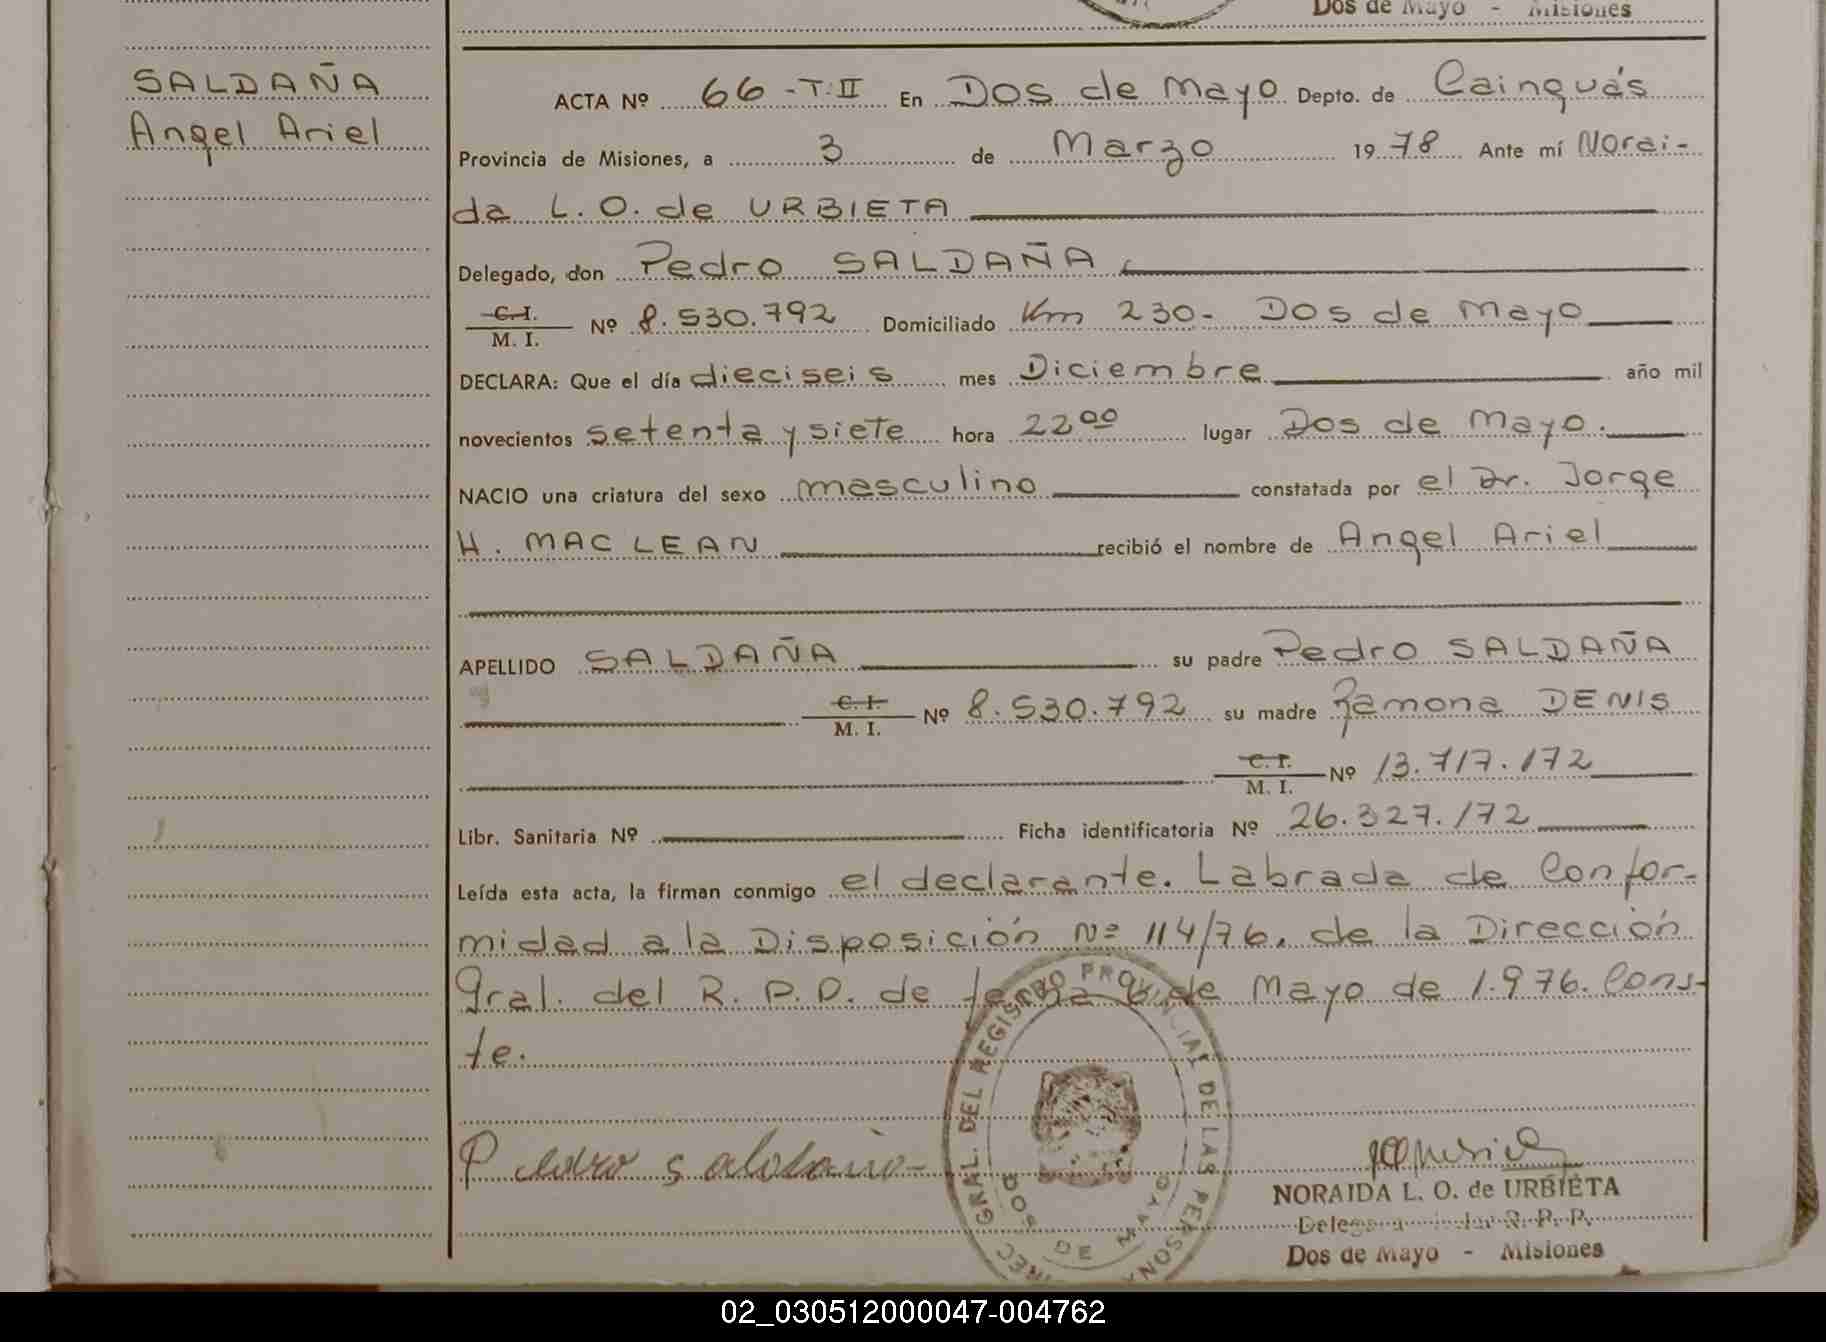 Dos de Mayo - Misiones
SALDAÑA
Angel Ariel
ACTA Nº 66 - T. II En Dos de Mayo Depto. de Cainguás
Provincia de Misiones, a 3 de Marzo 1978 Ante mí Norai-
da L. O. de URBIETA
Delegado, don Pedro SALDAÑA
C.I.
M. I. Nº 8.530.792 Domiciliado Km 230- Dos de Mayo
DECLARA: Que el día dieciseis mes Diciembre año mil
novecientos setenta y siete hora 22⁰⁰ lugar Dos de Mayo.
NACIO una criatura del sexo masculino constatada por el Dr. Jorge
H. MAC LEAN recibió el nombre de Angel Ariel
APELLIDO SALDAÑA su padre Pedro SALDAÑA
C.I.
M. I. Nº 8.530.792 su madre Ramona DENIS
C.I.
M. I. Nº 13.717.172
Libr. Sanitaria Nº Ficha identificatoria Nº 26.327.172
Leída esta acta, la firman conmigo el declarante. Labrada de Confor-
midad a la Disposición Nº 114/76, de la Dirección
Gral. del R. P. P. de fecha de Mayo de 1.976. Cons-
te.
GRAL. DEL REGISTRO PROVINCIAL DE LAS PERSONA
DOS DE MAYO
Pedro saldaño
NORAIDA L. O. de URBIETA
R. P. P.
Dos de Mayo - Misiones
02_030512000047-004762